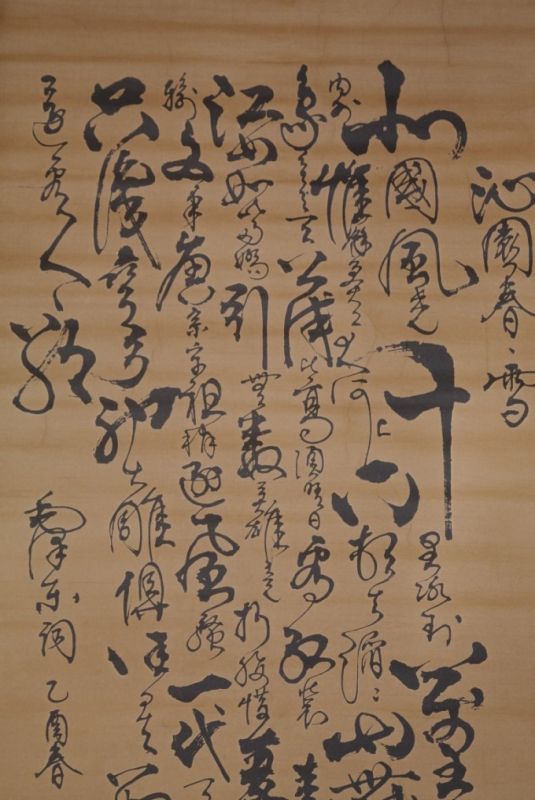 沁園春·雪
北國風光千里冰封萬里
內外惟餘莽莽大河上下頓失滔滔山舞
象欲與天公試比高須晴日看紅裝素
江山如此多嬌引無數英雄競折腰惜秦
輸文采唐宗宋祖稍遜風騷一代天
只識彎弓射大雕俱往矣數風
還看今朝
毛澤東詞 乙酉春